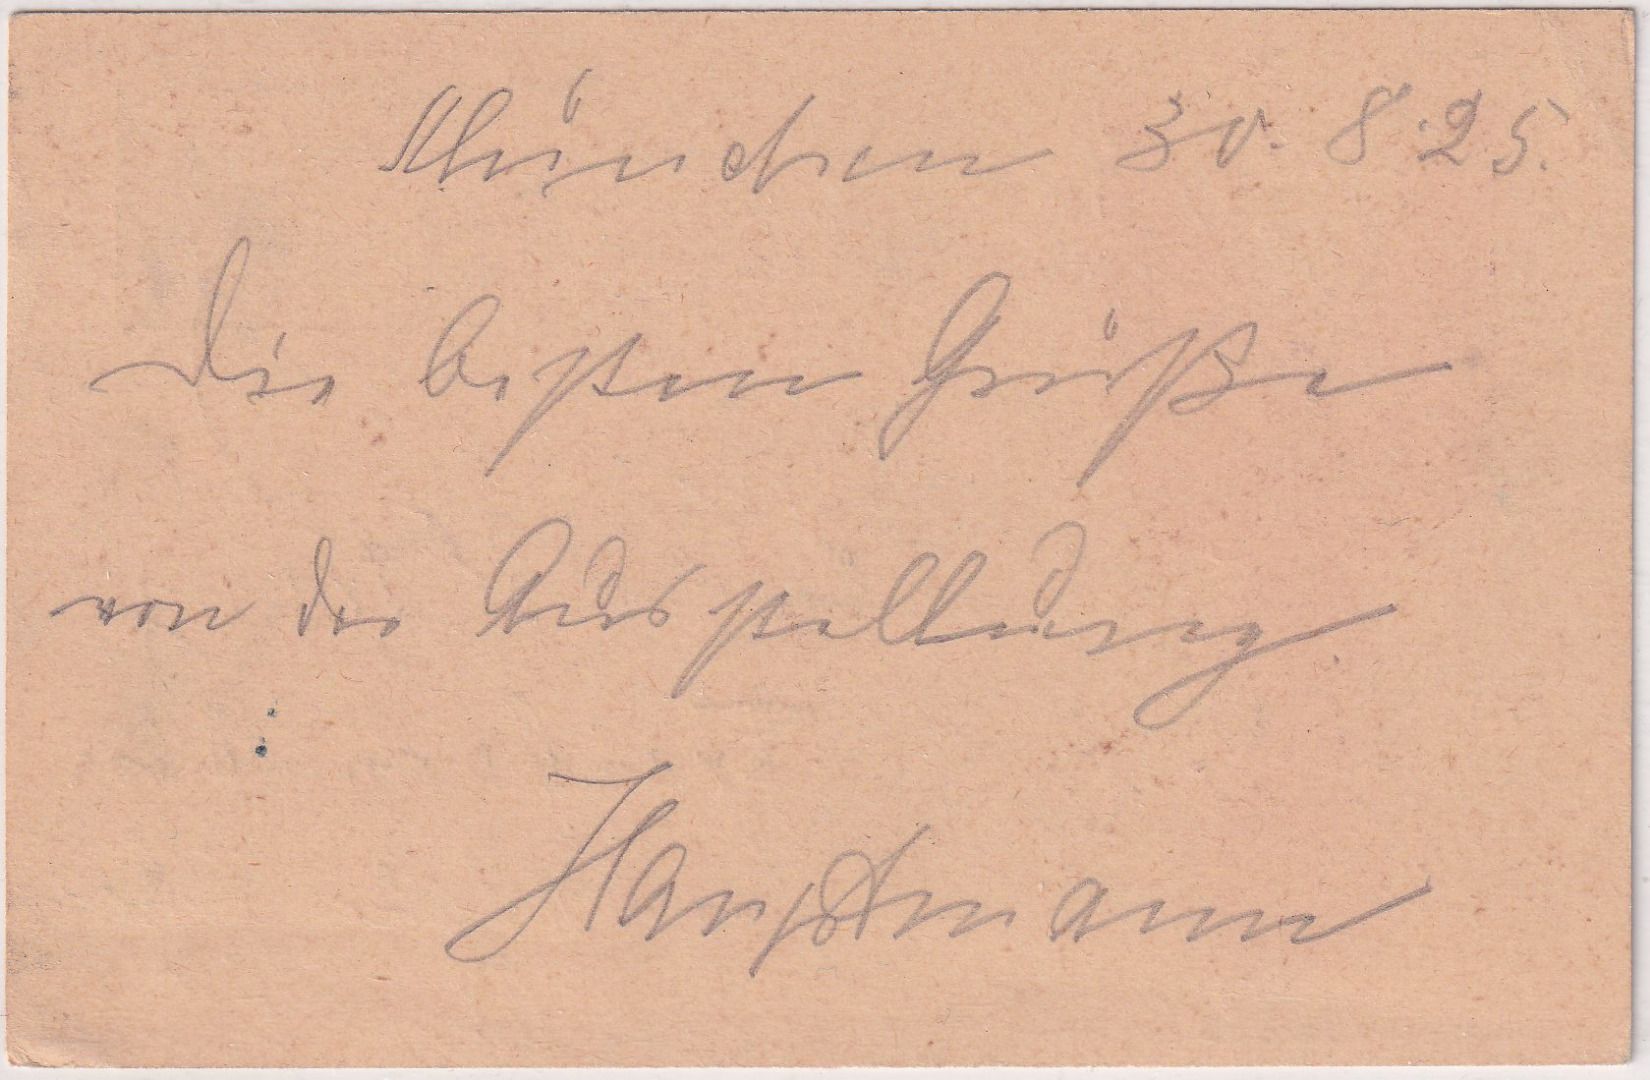 München 30. 8. 25.
Die besten Grüße
von der Ausstellung
Hauptmann